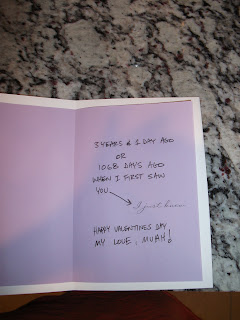 3 YEARS & 1 DAY AGO
OR
1068 DAYS AGO
WHEN I FIRST SAW
YOU
I just knew
HAPPY VALENTINES DAY
MY LOVE, MUAH!